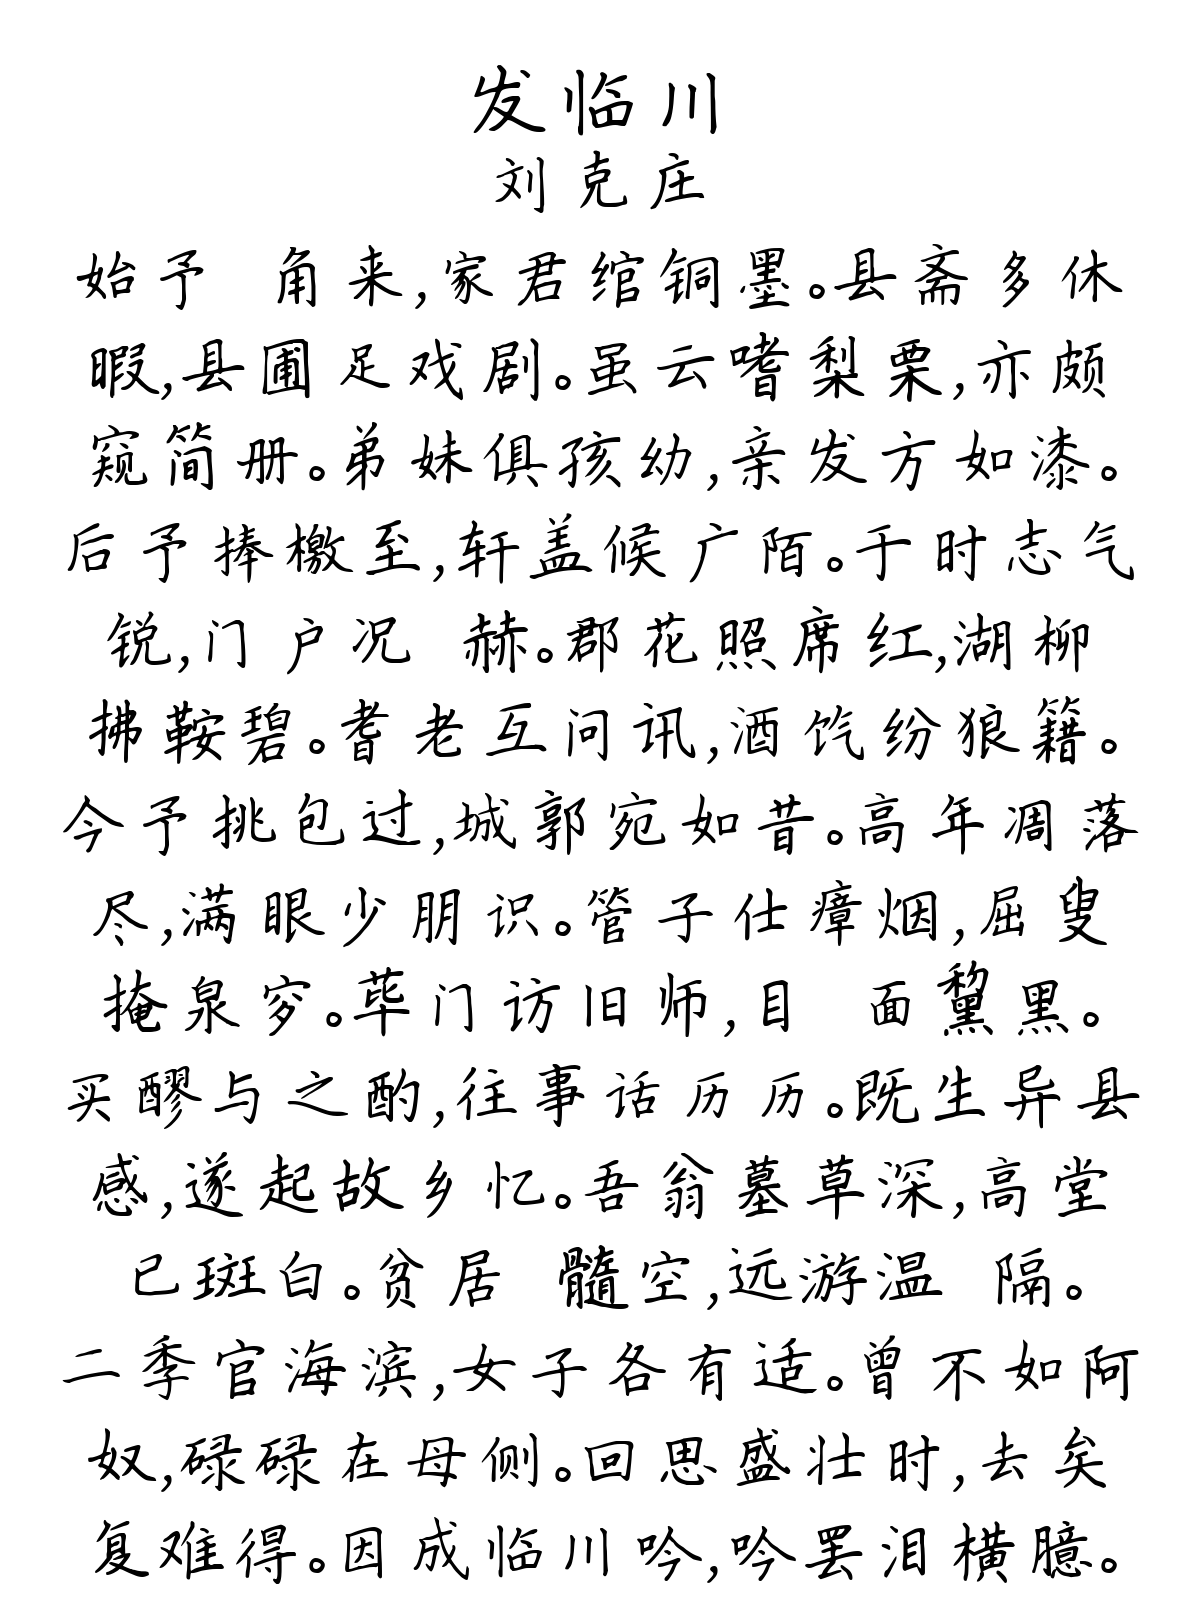 发临川
刘克庄
始予 角来,家君绾铜墨。县斋多休
暇,县圃足戏剧。虽云嗜梨栗,亦颇
窥简册。弟妹俱孩幼,亲发方如漆。
后予捧檄至,轩盖候广陌。于时志气
锐,门户况 赫。郡花照席红,湖柳
拂鞍碧。耆老互问讯,酒饩纷狼籍。
今予挑包过,城郭宛如昔。高年凋落
尽,满眼少朋识。管子仕瘴烟,屈叟
掩泉穸。荜门访旧师,目 面黧黑。
买醪与之酌,往事话历历。既生异县
感,遂起故乡忆。吾翁墓草深,高堂
已斑白。贫居 髓空,远游温 隔。
二季官海滨,女子各有适。曾不如阿
奴,碌碌在母侧。回思盛壮时,去矣
复难得。因成临川吟,吟罢泪横臆。